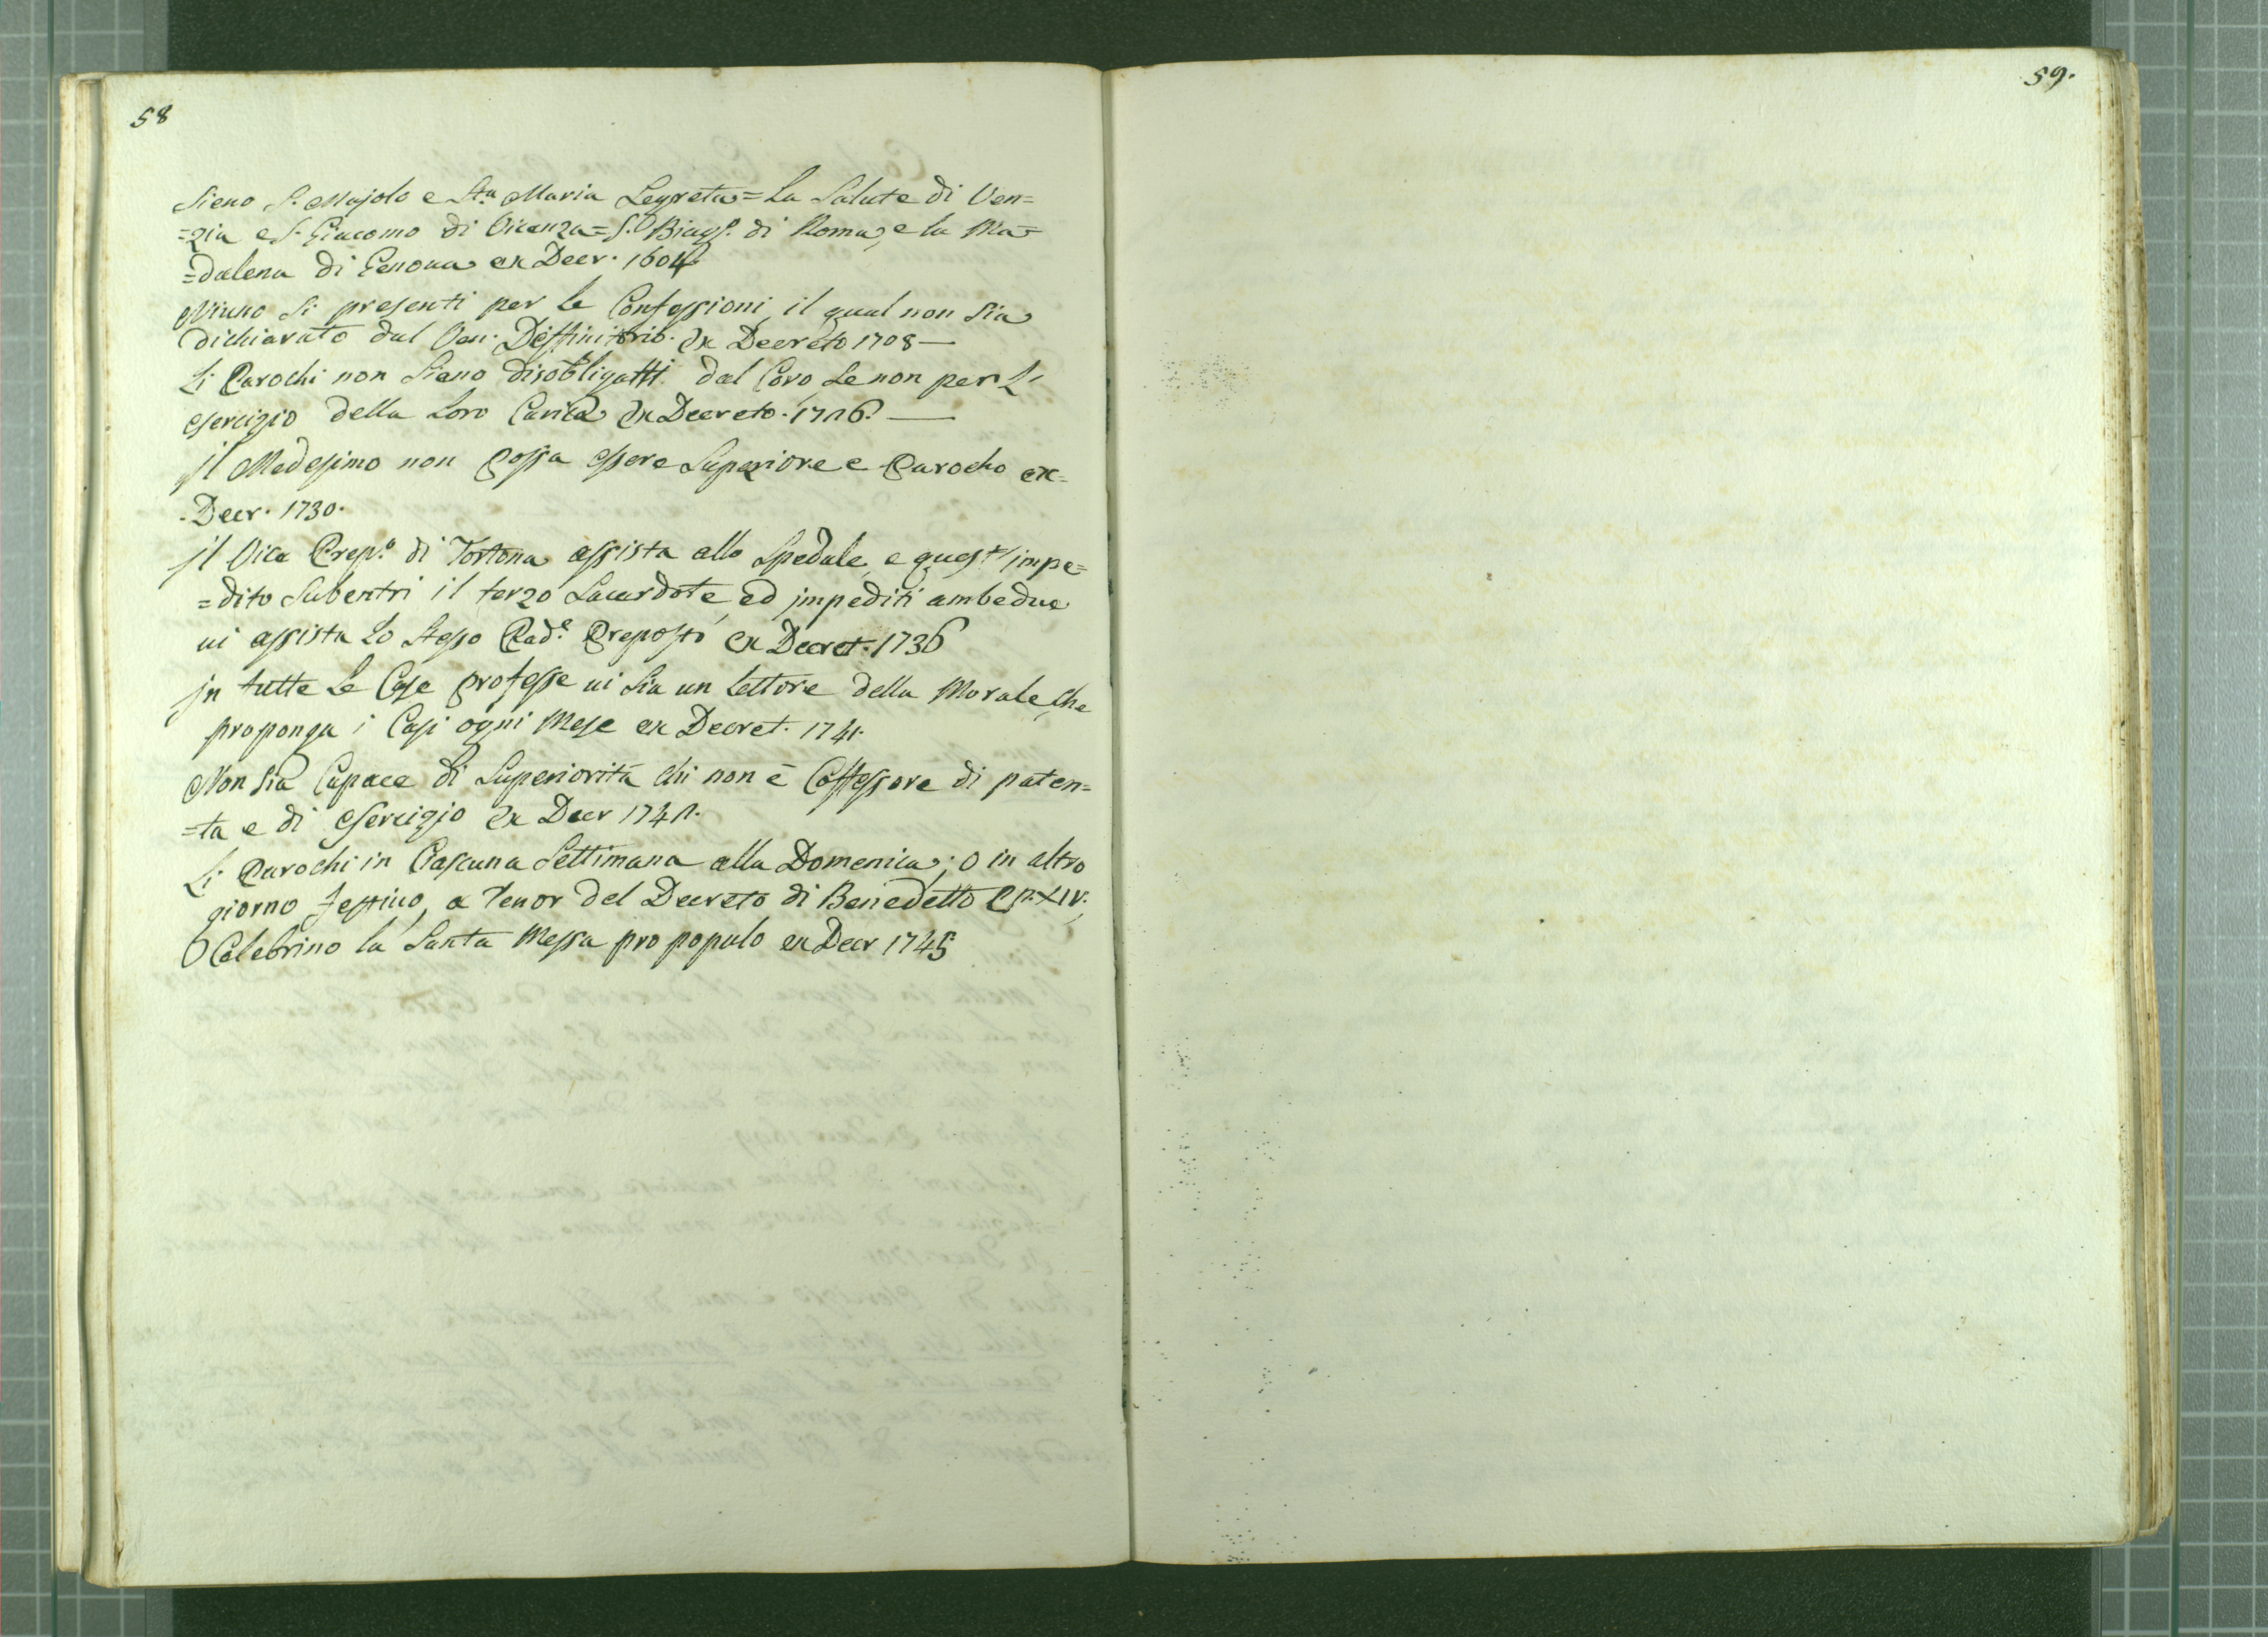 58
Sieno S. Majolo e Sta. Maria Segreta = La Salute di Ven=
=zia e S. Giacomo di Vicenza = S. Biagº. di Roma, e la Ma=
=dalena di Genoua ex Decr. 1604
Niuno si presenti per le Confessioni, il qual non sia
dichiarato dal Ven. Diffinitorio. Ex Decreto 1708 —
Li Parochi non sieno disobligatti dal Coro, se non per L'
esercizio della Loro Carica Ex Decreto. 1726. —
il Medesimo non possa essere Superiore e Parocho ex=
. Decr. 1730.
il Vice Prepº. di Tortona assista allo Spedale, e quest' impe=
=dito Subentri il terzo Sacerdote, ed impediti ambedue
ui assista Lo Stesso Padᵉ. Preposto ex Decret. 1736
in tutte Le Case professe ui sia un Lettore della Morale, che
proponga i Casi ogni Mese ex Decret. 1741.
Non sia Capace di Superiorità chi non è Coffessore di paten=
=ta e di esercizio Ex Decr 1741.
Li Parochi in Cascuna Settimana alla Domenica, o in altro
giorno festiuo, a Tenor del Decreto di Benedetto PP. XIV.,
Celebrino la Santa Messa pro populo ex Decr 1745
59.